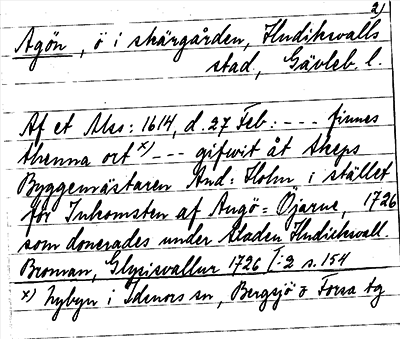 2)
Agön, ö i skärgården, Hudiksvalls
stad, Gävleb. l.
Af et Mss: 1614, d. 27 Feb: --- finnes
thenna ort x) --- gifwit åt skeps
Byggemästaren And: Holm i stället
för Inkomsten af Angö= Öjarne, 1726
som donerades under staden Hudichsvall.
Broman, Glysisvallur 1726 I:2 s. 154
x) hybyn i Idenors sn, Bergsjö o Forsa tg